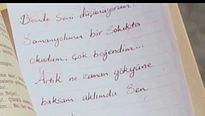 Bende Seni düşünüyorum.
Samanyolunu bir Sokakta
okudum, çok beğendim...
Artık ne zaman gökyüne
baksam aklımda Sen